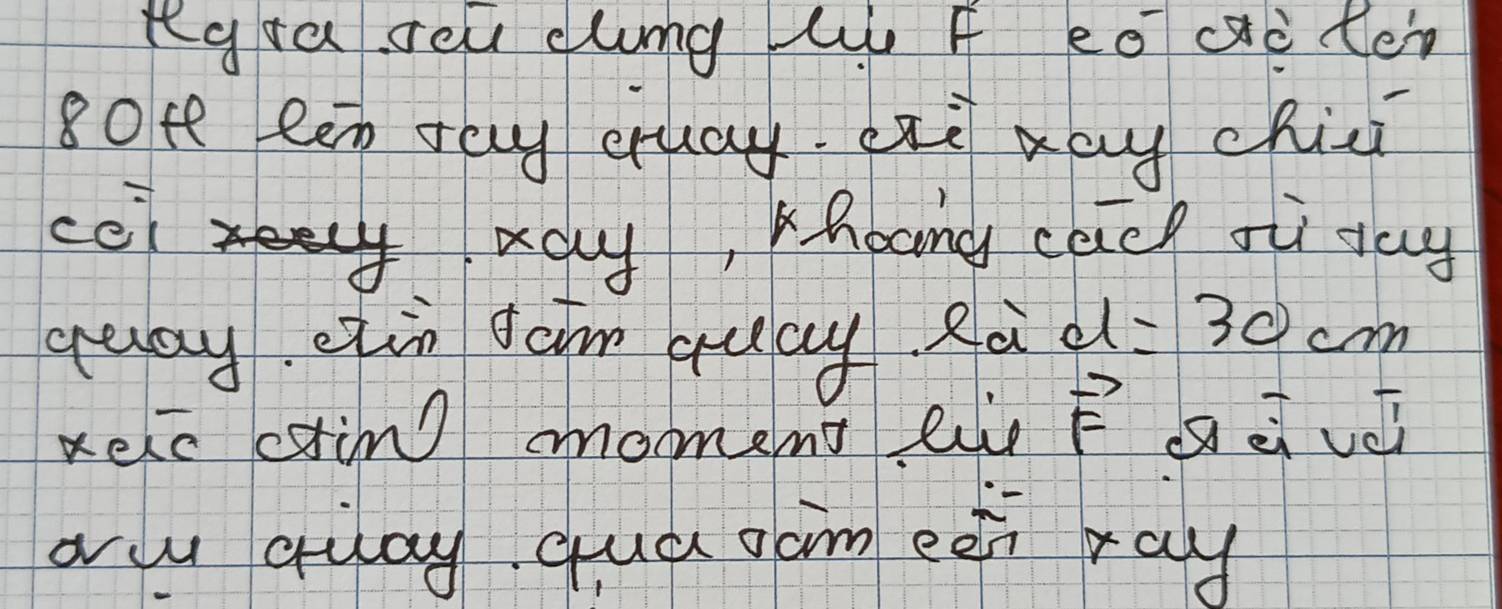 Ng ta tác dụng lực F có độ lớn
80N lên tay quay. để xay chiếc
cối xay, khoảng cách từ tay
quay. đến tâm quay là d = 30cm
xác định moment lực F đối với
trục quay. qua tâm cối xay